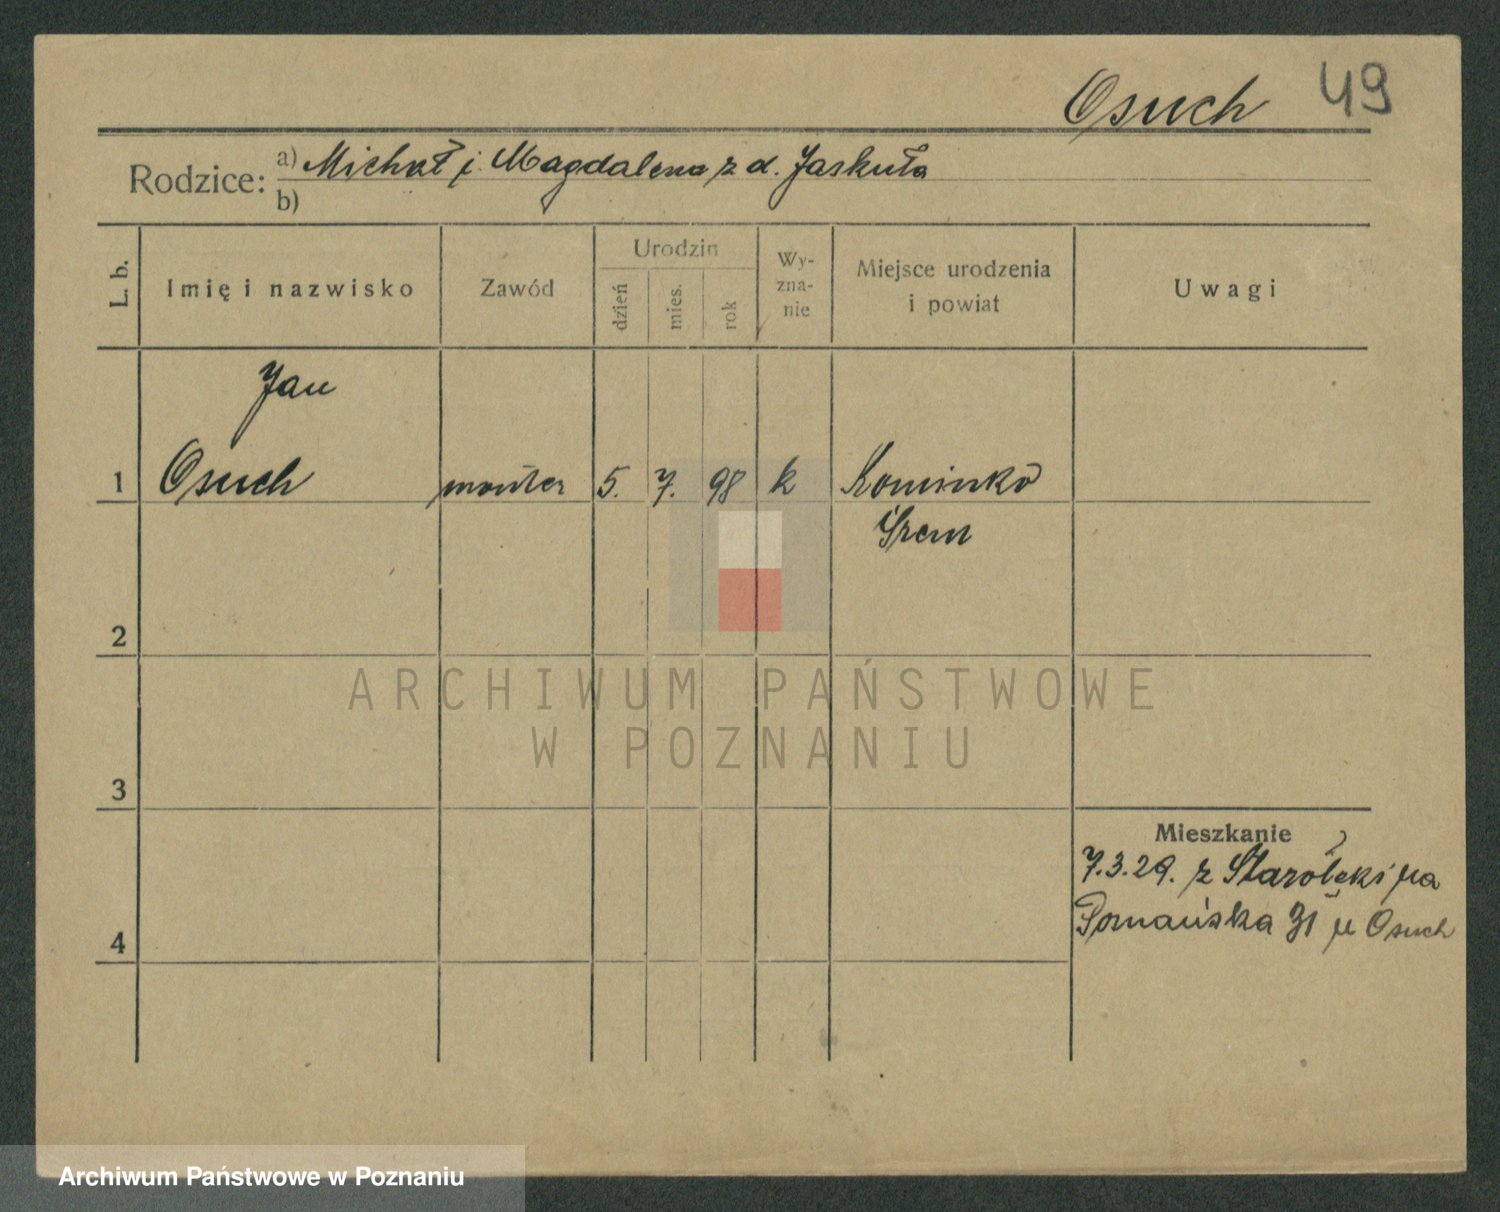 Osuch 49
Rodzice: a) Michał i Magdalena z d. Jaskuła
b)
L. b. Imię i nazwisko Zawód Urodzin dzień mies. rok Wy-zna-nie Miejsce urodzenia i powiat Uwagi
Jan
1 Osuch monter 5. 7. 98 k Kominko
Śrem
2
ARCHIWUM PAŃSTWOWE
W POZNANIU
3
Mieszkanie
7.3.29. z Starołęki na
4 Poznańska 31 u Osuch
Archiwum Państwowe w Poznaniu